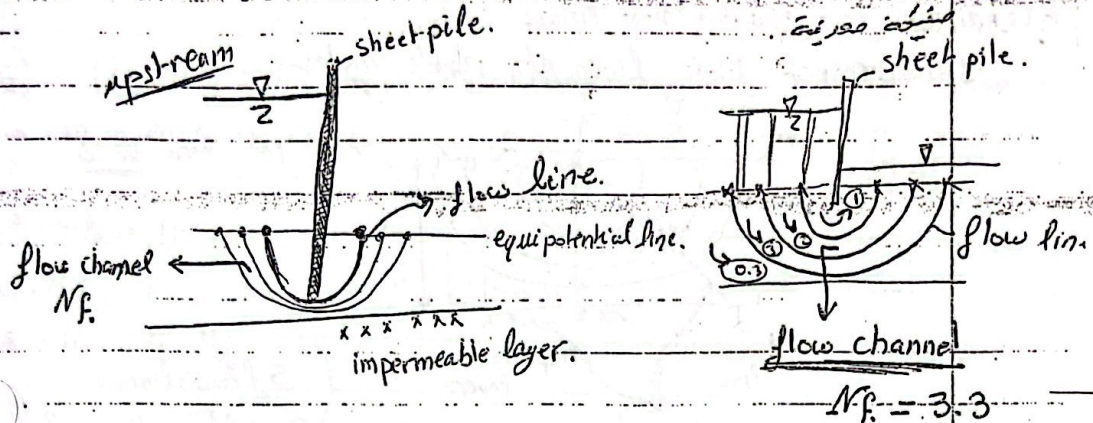 upstream
sheet-pile.
2
flow line.
equipotential line.
flow channel
Nf.
x x x x x x
impermeable layer.
sheet pile.
2
1
2
3
0.3
flow line
flow channel
Nf. = 3.3